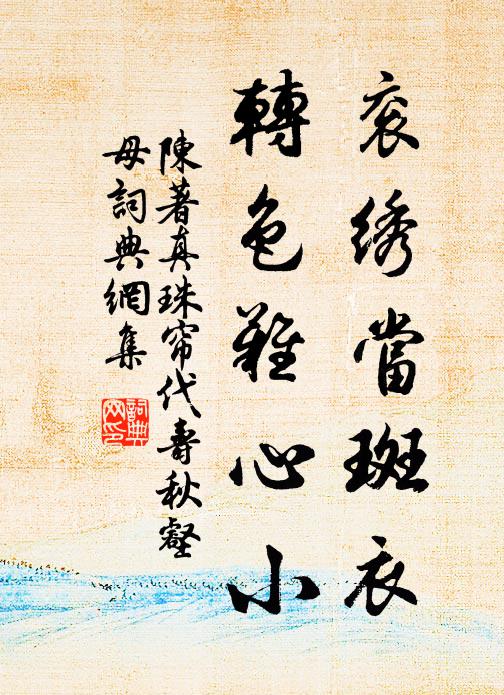 衮绣當斑衣
轉色難心小
陳著真珠帘代壽秋壑
母詞典網集
詞典
网印